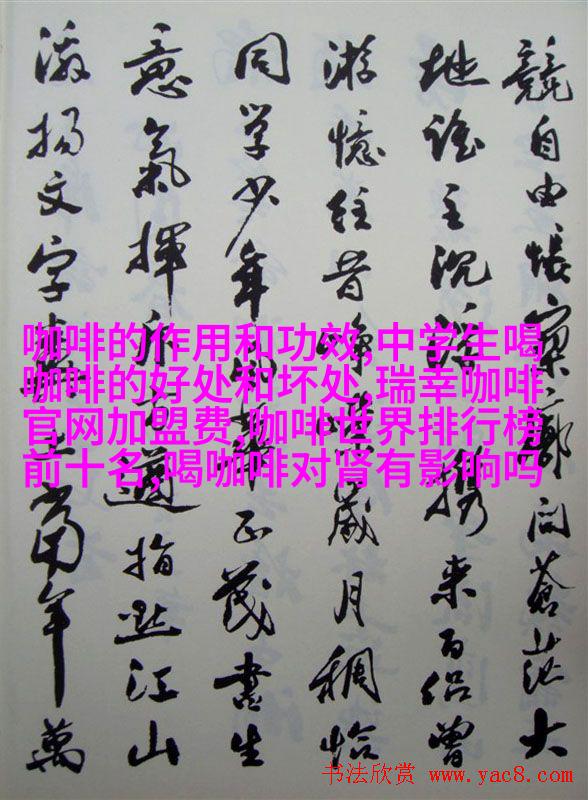 競自由悵寥廓问蒼茫大
地谁主沉浮携来百侣曾
游憶往昔峥嵘歲月稠恰
同学少年風華正茂書生
意氣揮斥方遒指點江山
激揚文字糞土當年萬
咖啡的作用和功效,中学生喝
咖啡的好处和坏处,瑞幸咖啡
官网加盟费,咖啡世界排行榜
前十名,喝咖啡对肾有影响吗
书法欣赏 www.yac8.com